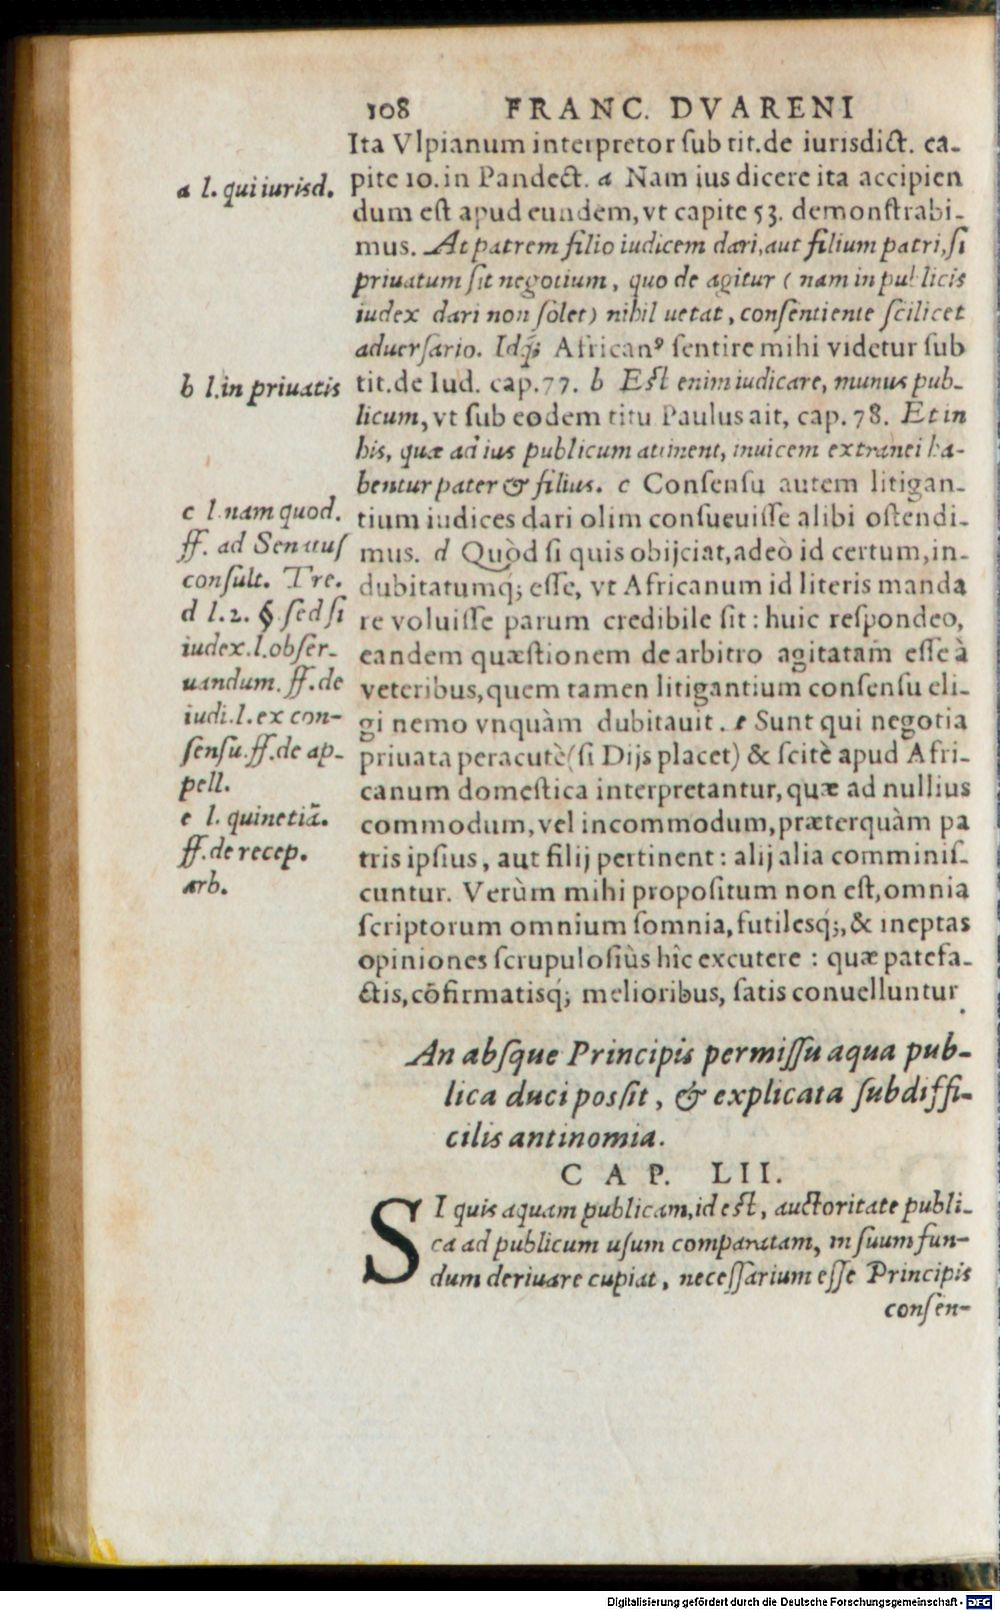 108 FRANC. DVARENI
Ita Vlpianum interpretor sub tit. de iurisdict. ca-
pite 10. in Pandect. a Nam ius dicere ita accipien
dum est apud eundem, vt capite 53. demonstrabi-
mus. At patrem filio iudicem dari, aut filium patri, si
priuatum sit negotium, quo de agitur ( nam in publicis
iudex dari non solet) nihil uetat, consentiente scilicet
aduersario. Idq́; Africanꝰ sentire mihi videtur sub
tit. de Iud. cap. 77. b Est enim iudicare, munus pub-
licum, vt sub eodem titu Paulus ait, cap. 78. Et in
his, quæ ad ius publicum attinent, inuicem extranei ha-
bentur pater & filius. c Consensu autem litigan-
tium iudices dari olim consueuisse alibi ostendi-
mus. d Quòd si quis obijciat, adeò id certum, in-
dubitatumq́; esse, vt Africanum id literis manda
re voluisse parum credibile sit : huic respondeo,
eandem quæstionem de arbitro agitatam esse à
veteribus, quem tamen litigantium consensu eli-
gi nemo vnquàm dubitauit. e Sunt qui negotia
priuata peracutè (si Dijs placet) & scitè apud Afri-
canum domestica interpretantur, quæ ad nullius
commodum, vel incommodum, præterquàm pa
tris ipsius, aut filij pertinent : alij alia comminis-
cuntur. Verùm mihi propositum non est, omnia
scriptorum omnium somnia, futilesq́;, & ineptas
opiniones scrupulosiùs hîc excutere : quæ patefa-
ctis, cōfirmatisq́; melioribus, satis conuelluntur.
a l. qui iurisd.
b l. in priuatis
c l. nam quod.
ff. ad Senatus
consult. Tre.
d l. 2. § sed si
iudex. l. obser-
uandum. ff. de
iudi. l. ex con-
sensu. ff. de ap-
pell.
e l. quinetiā.
ff. de recep.
arb.
An absque Principis permissu aqua pub-
lica duci possit, & explicata subdiffi-
cilis antinomia.
CAP. LII.
SI quis aquam publicam, id est, auctoritate publi-
ca ad publicum usum comparatam, in suum fun-
dum deriuare cupiat, necessarium esse Principis
consen-
Digitalisierung gefördert durch die Deutsche Forschungsgemeinschaft - DFG